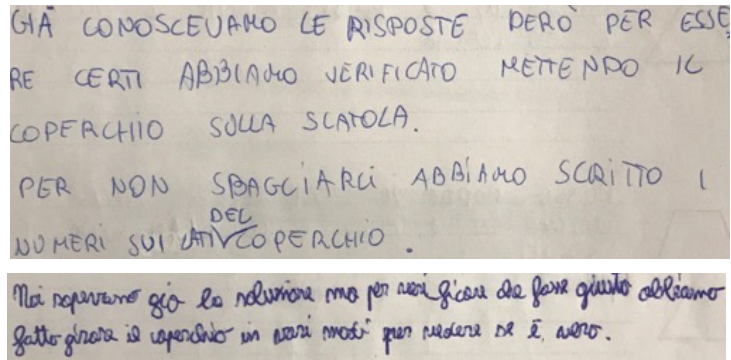 GIÀ CONOSCEVAMO LE RISPOSTE PERÒ PER ESSE
RE CERTI ABBIAMO VERIFICATO METTENDO IL
COPERCHIO SULLA SCATOLA.
PER NON SBAGLIARCI ABBIAMO SCRITTO I
DEL
NUMERI SUI LATI COPERCHIO.
Noi sapevamo già la soluzione ma per verificare che fosse giusto abbiamo
fatto girare il coperchio in vari modi per vedere se è vero.